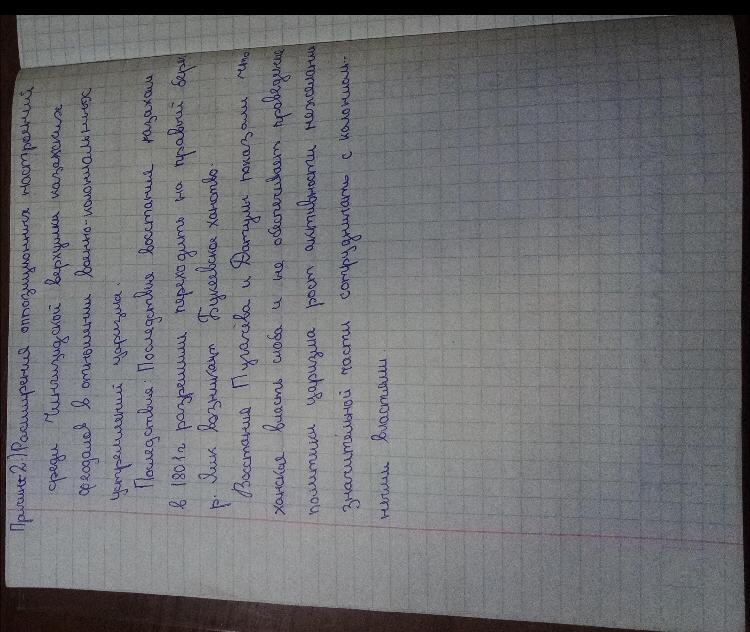 Причина 2:) Расширения оппозиционных настроений
среди Чингизидской верхушки казахских
феодалов в отношении военно-колониальных
устремлений царизма.
Последствия: Последствие восстания казахам
в 1801г разрешили переходить на правый бер
р. Яик возникает Букеевское ханство.
Восстание Пугачёва и Датулы показали что
ханская власть слаба и не обеспечивает проведение
политики царизма рост активности нежелании
значительной части сотрудничать с колониаль-
ными властями